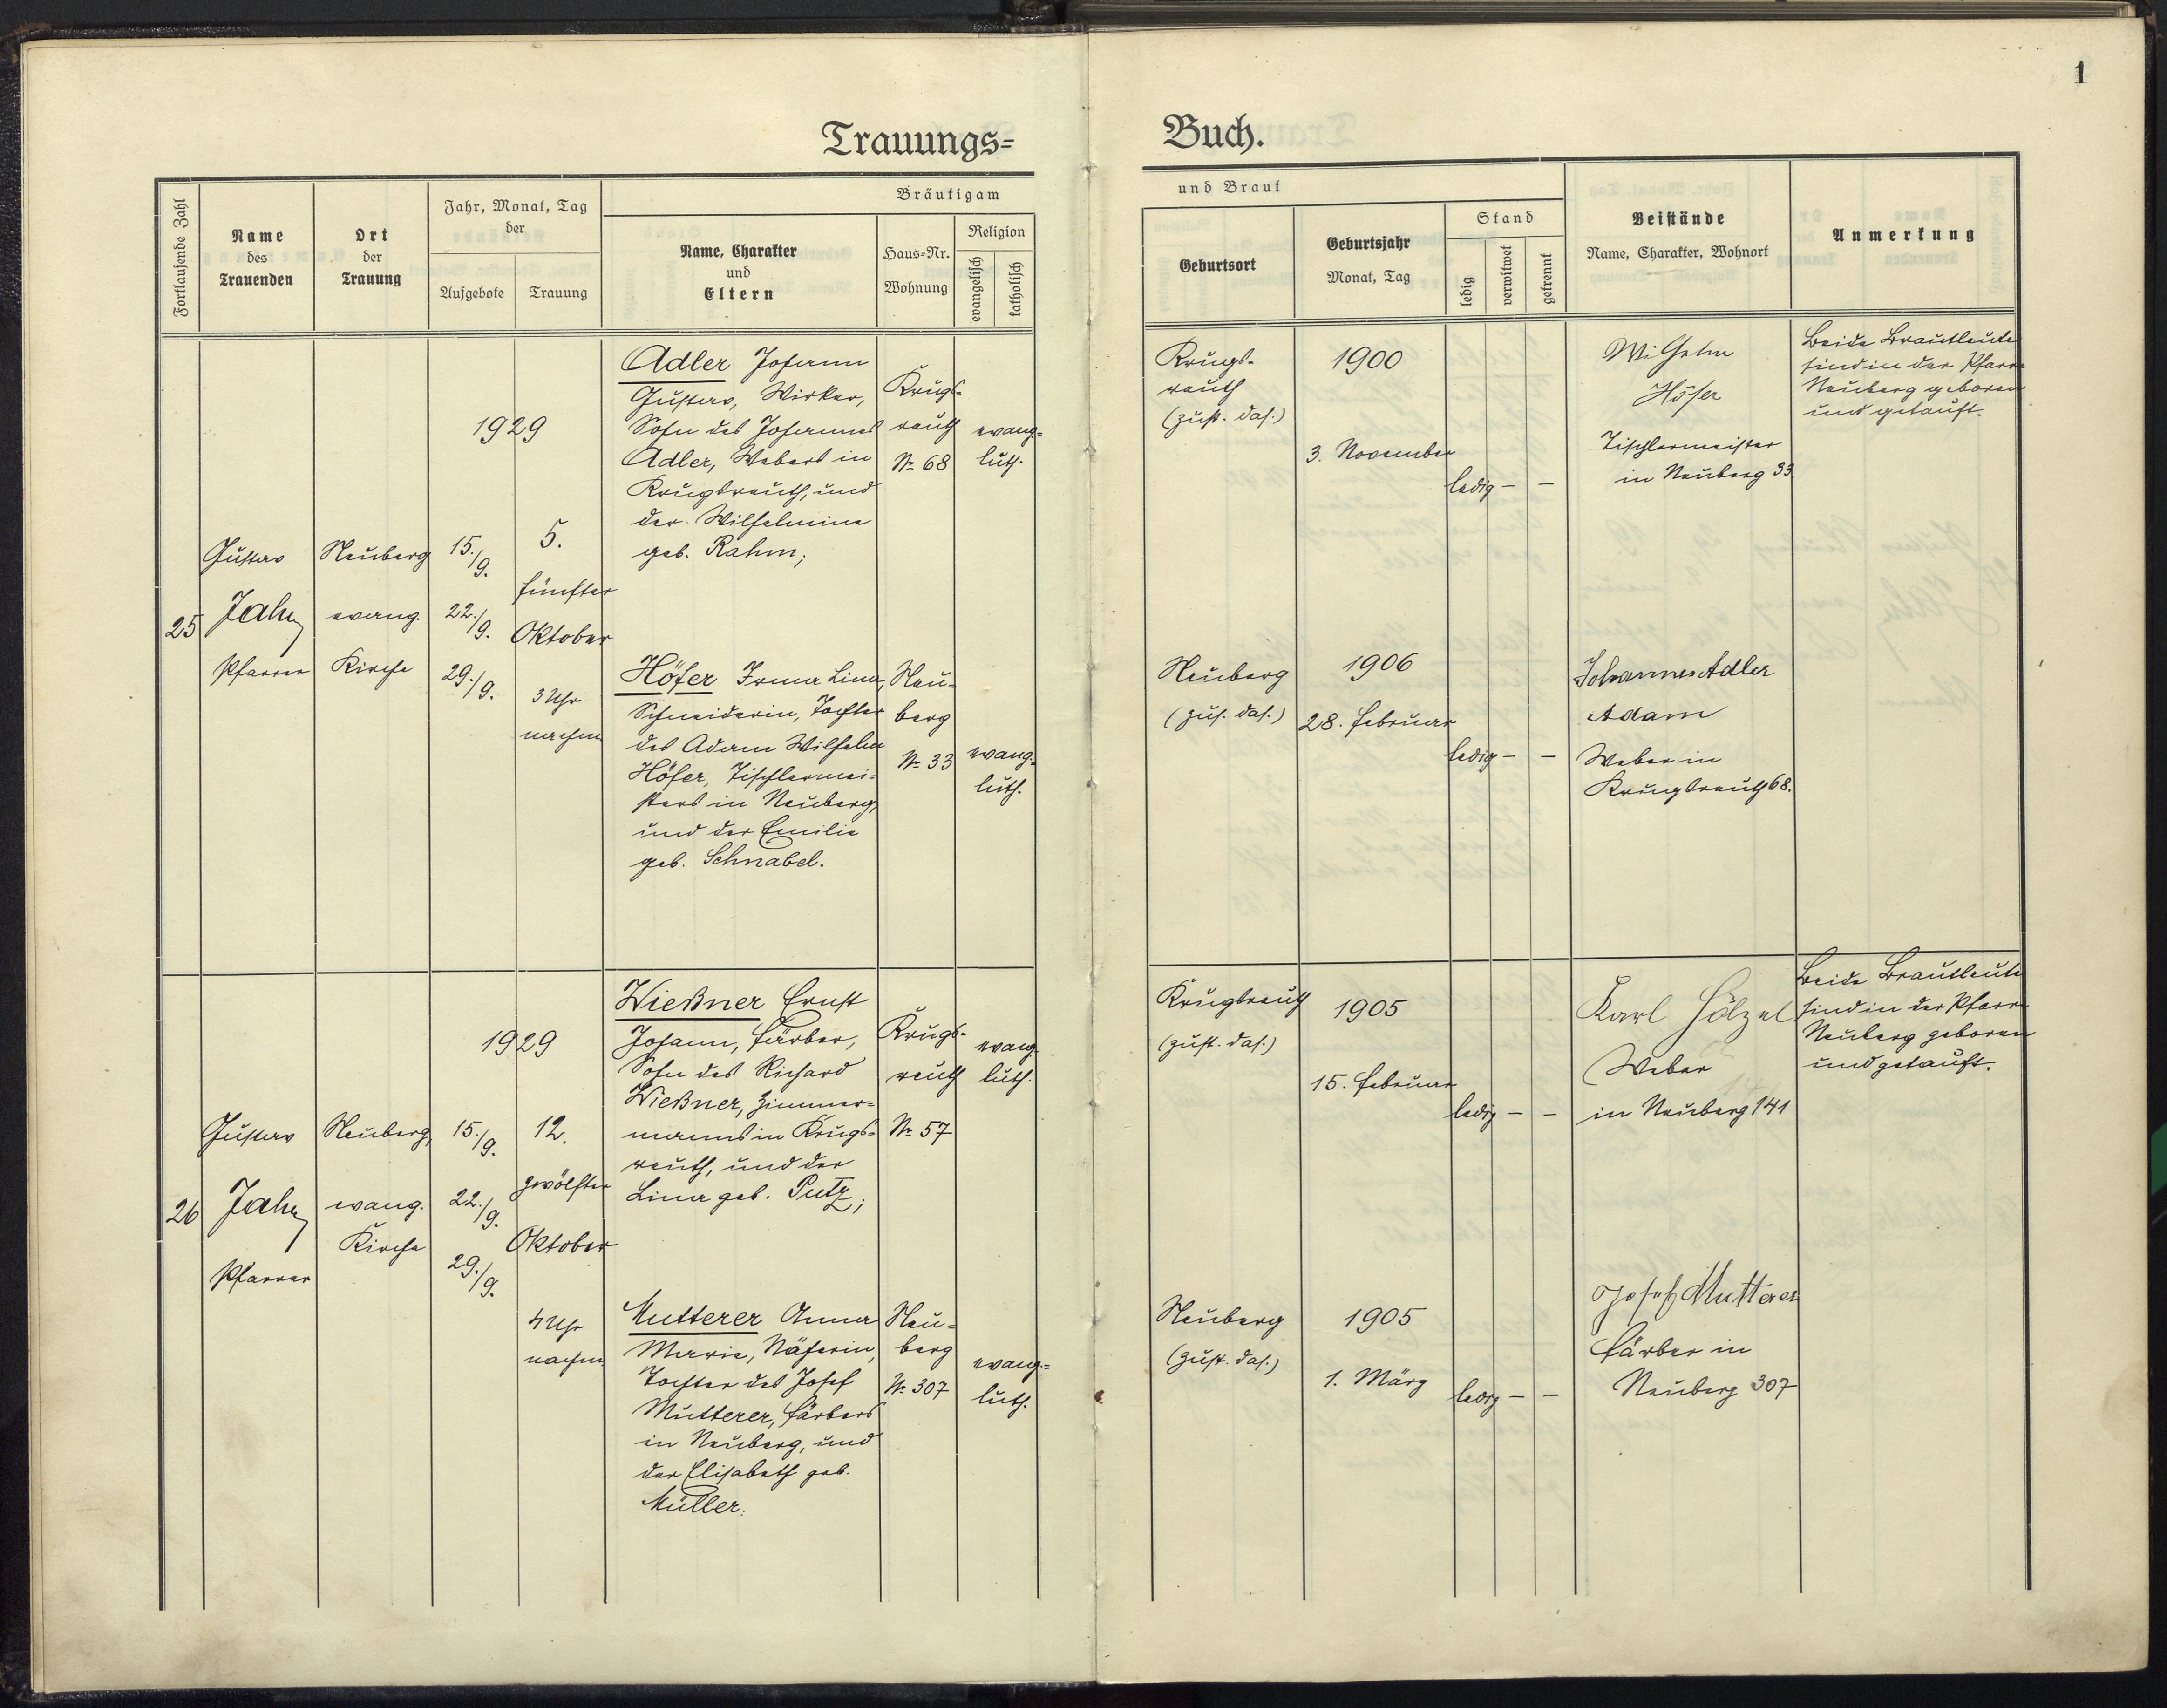 1
Trauungs=
Buch.
Fortlaufende Zahl
Name
des
Trauenden
Ort
der
Trauung
Jahr, Monat, Tag
der
Aufgebote
Trauung
Bräutigam
Name, Charakter
und
Eltern
Haus=Nr.
Wohnung
Religion
evangelisch
katholisch
und Braut
Geburtsort
Geburtsjahr
Monat, Tag
Stand
ledig
verwitwet
getrennt
Beistände
Name, Charakter, Wohnort
Anmerkung
25
Gustav
Jahn
Pfarrer
Neuberg
evang.
Kirche
1929
15./9.
22./9.
29./9.
5.
fünfter
Oktober
3 Uhr
nachm.
Adler Johann
Gustav, Wirker,
Sohn des Johannes
Adler, Webers in
Krugsreuth, und
der Wilhelmine
geb. Rahm;
Krugs-
reuth
№ 68
evang=
luth.
Höfer Irma Lina,
Schneiderin, Tochter
des Adam Wilhelm
Höfer, Tischlermei=
sters in Neuberg,
und der Emilie
geb. Schnabel.
Neu=
berg
№ 33
evang.=
luth.
Krugs-
reuth
(zust. das.)
1900
3. November
ledig – –
Wilhelm
Höfer
Tischlermeister
in Neuberg 33.
Beide Brautleute
sind in der Pfarre
Neuberg geboren
und getauft.
Neuberg
(zus. das.)
1906
28. Februar
ledig – –
Johannes Adler
Adam
Weber in
Krugsreuth 68.
26
Gustav
Jahn
Pfarrer
Neuberg,
evang.
Kirche
1929
15./9.
22./9.
29./9.
12.
zwölfter
Oktober
4 Uhr
nachm.
Wießner Ernst
Johann, Färber,
Sohn des Richard
Wießner, Zimmer=
manns in Krugs=
reuth, und der
Lina geb. Putz;
Krugs-
reuth
№ 57
evang.
luth.
Mutterer Anna
Marie, Näherin,
Tochter des Josef
Mutterer, Färbers
in Neuberg, und
der Elisabeth geb.
Müller.
Neu=
berg
№ 307
evang.=
luth.
Krugsreuth
(zust. das.)
1905
15. Februar
ledig – –
Karl Hölzel
Weber
in Neuberg 141
Beide Brautleute
sind in der Pfarre
Neuberg geboren
und getauft.
Neuberg
(zust. das.)
1905
1. März
ledig – –
Josef Mutterer
Färber in
Neuberg 307